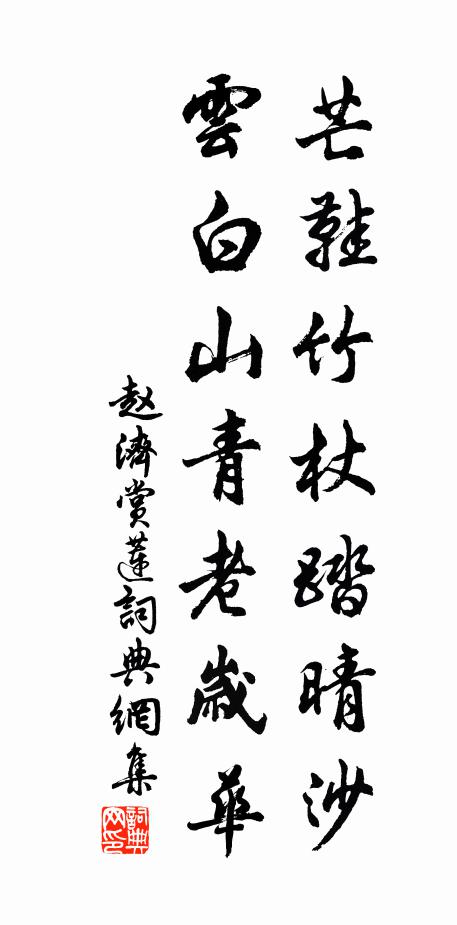 芒鞋竹杖踏晴沙
雲白山青老歲華
赵濟賞蓮詞典網集
詞典网印